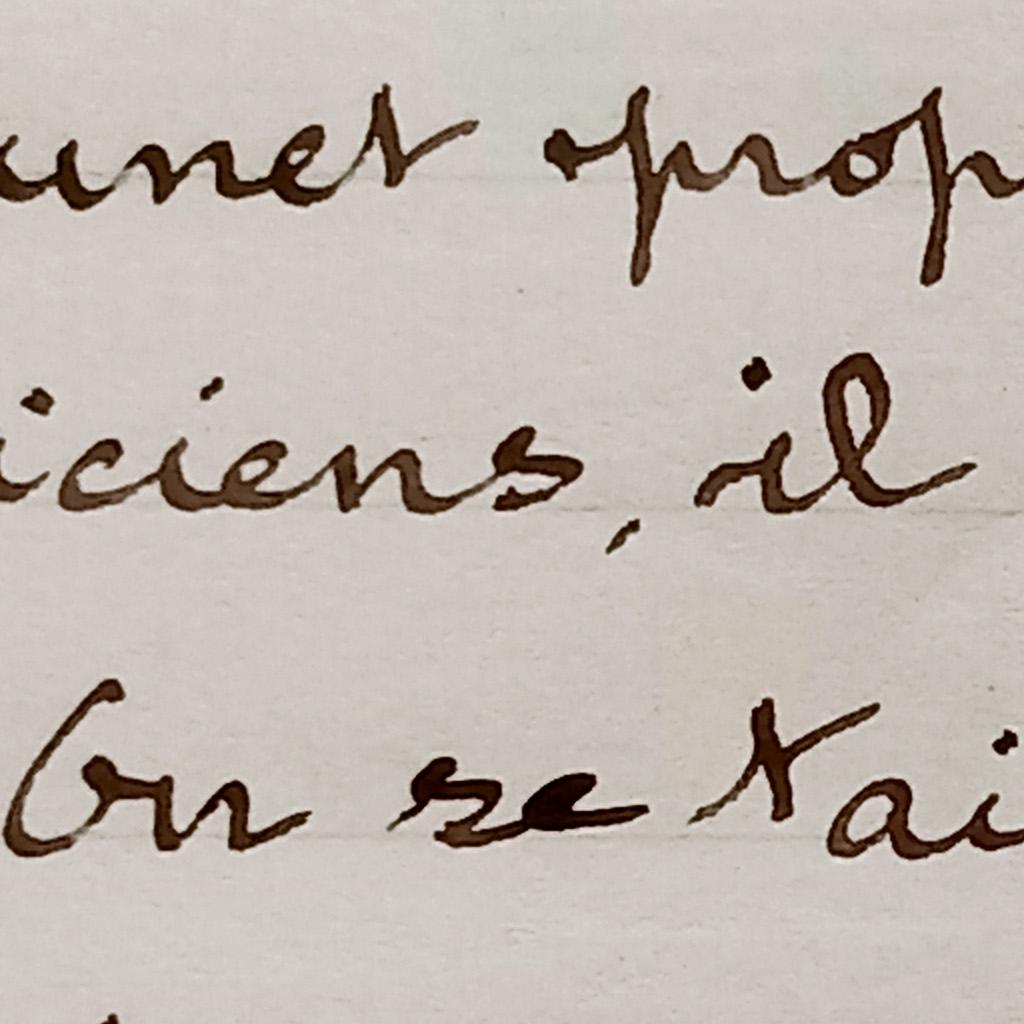 unet prop
iciens, il
On se tai